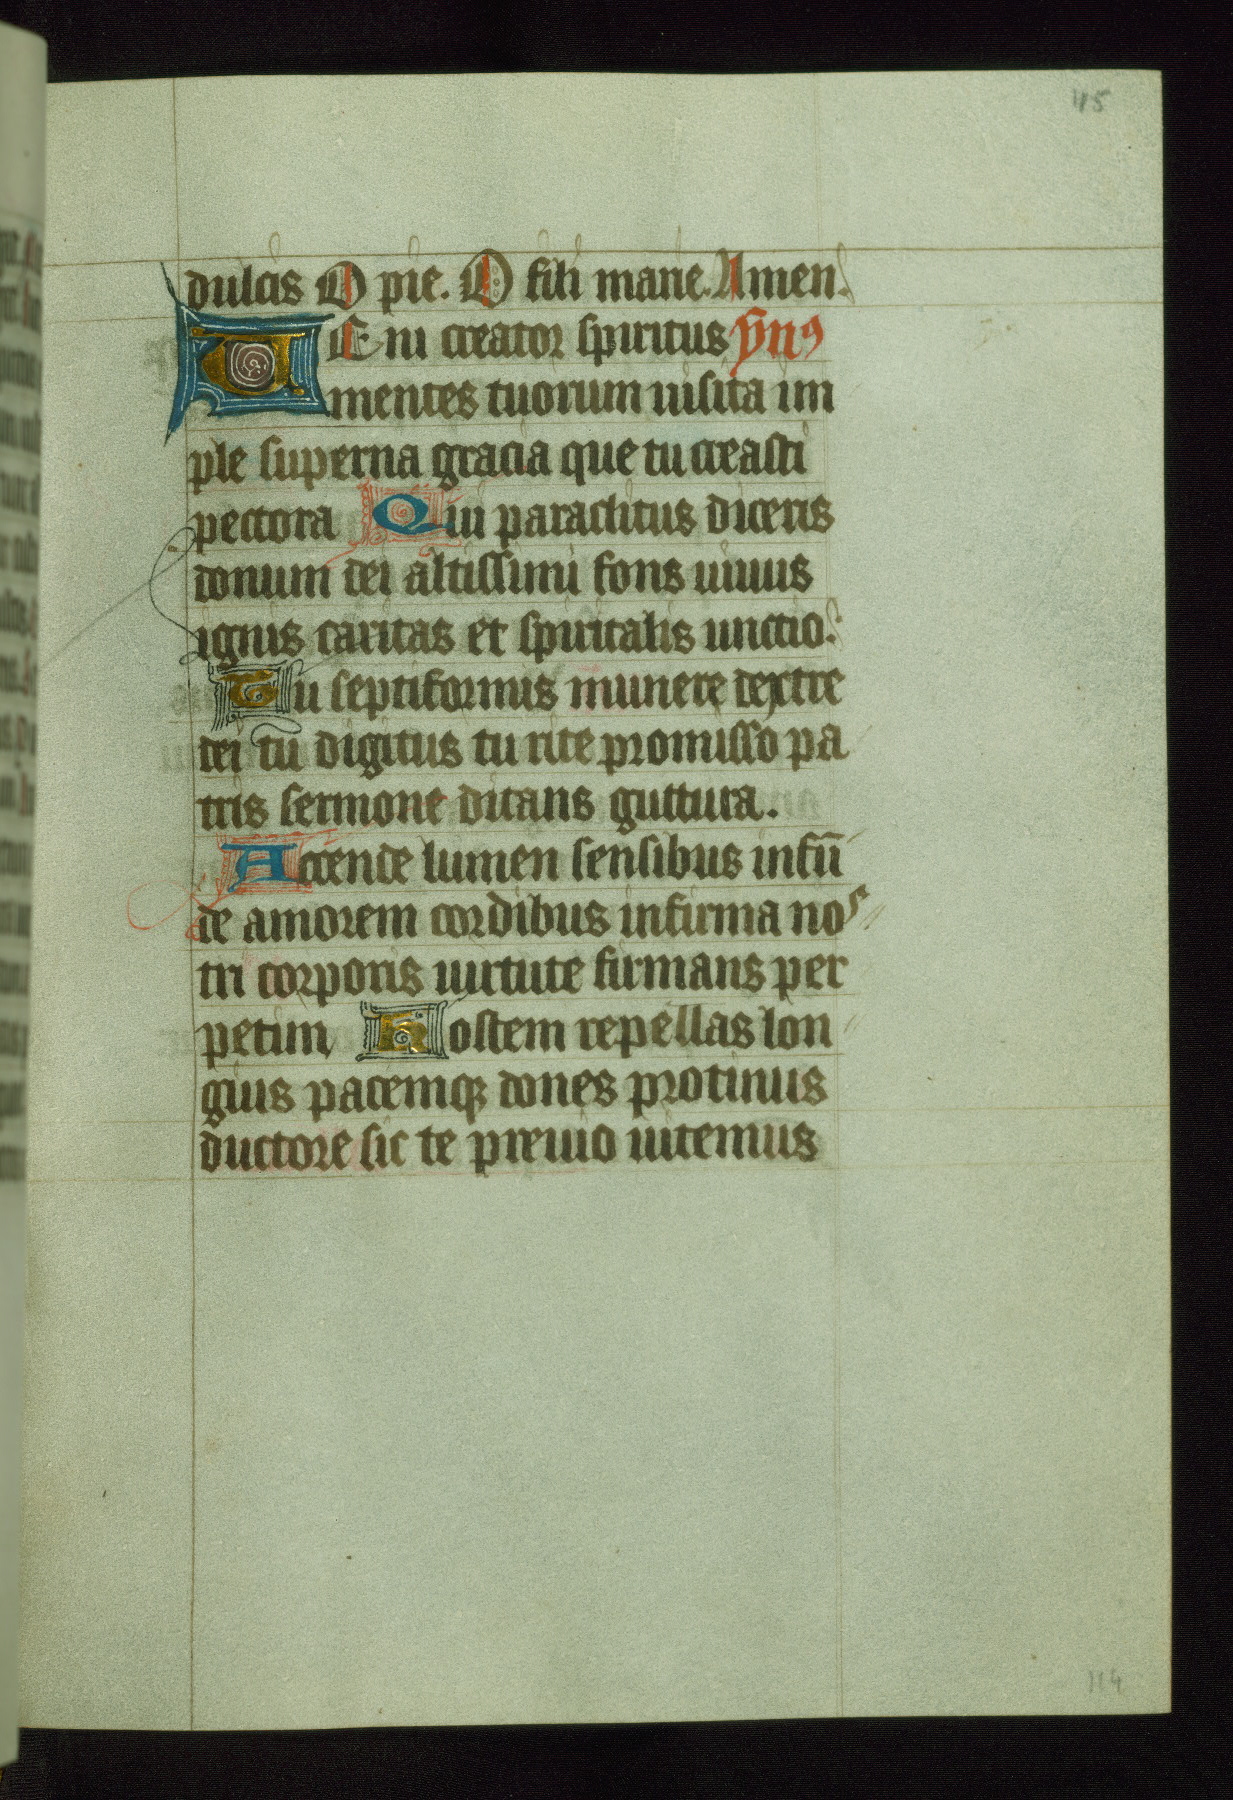 115
dulcis O pie. O fili marie. Amen.
VEni creator spiritus ẏnꝰ
mentes tuorum uisita im
ple superna gracia que tu creasti
pectora Qui paraclitus diceris
donum dei altissimi fons uiuus
ignis caritas et spiritalis unctio.
Tu septiformis munere dextre
dei tu digitus tu rite promisso pa
tris sermone ditans guttura.
Accende lumen sensibus infū
de amorem cordibus infirma nos
tri corporis uirtute firmans per
petim Hostem repellas lon
gius pacemqꝫ dones protinus
ductore sic te preuio uitemus
114